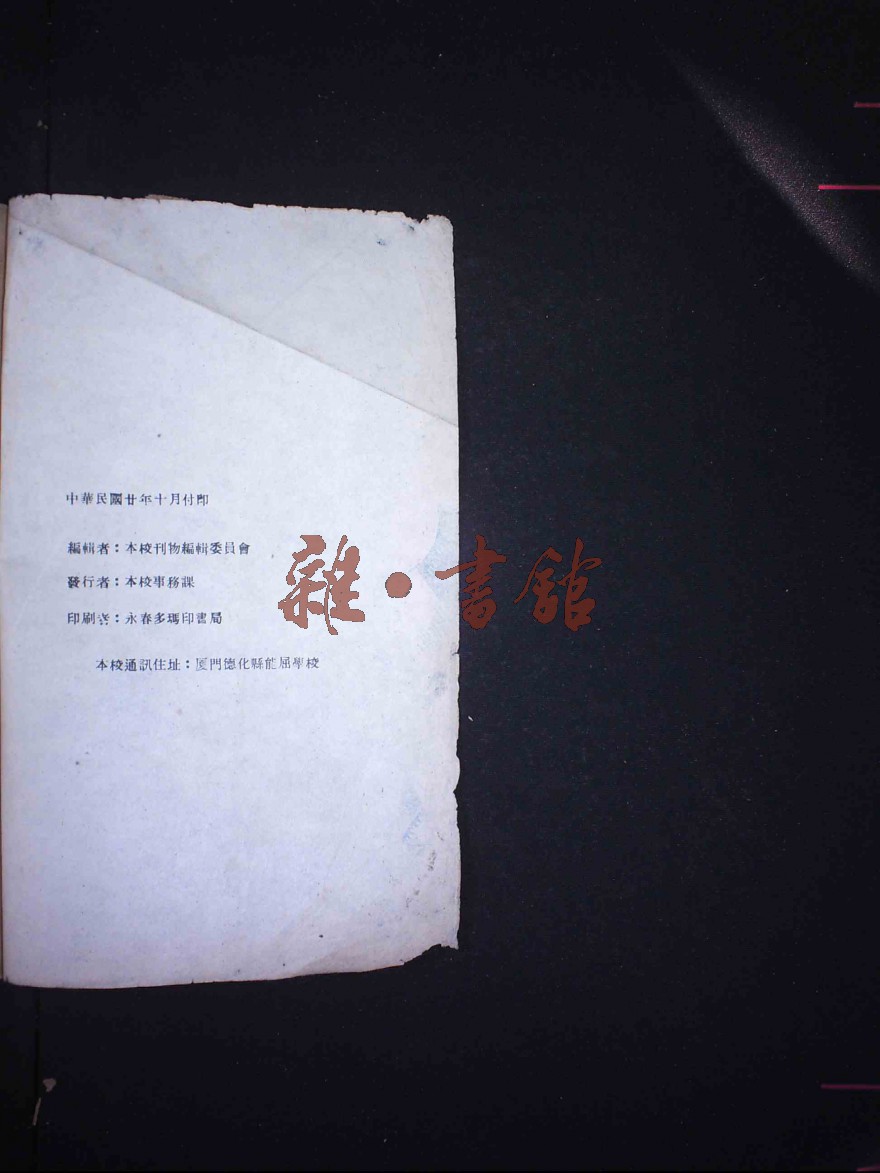 中華民國廿年十月付印
編輯者：本校刊物編輯委員會
發行者：本校事務課
印刷者：永春多瑪印書局
本校通訊住址：厦門德化縣龍屈學校
雜·書館